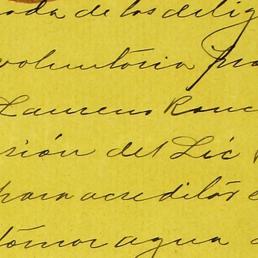 oda de las dilig
voluntaria pro
Laureno Ronc
sión del Lic
para acreditar e
tomar agua